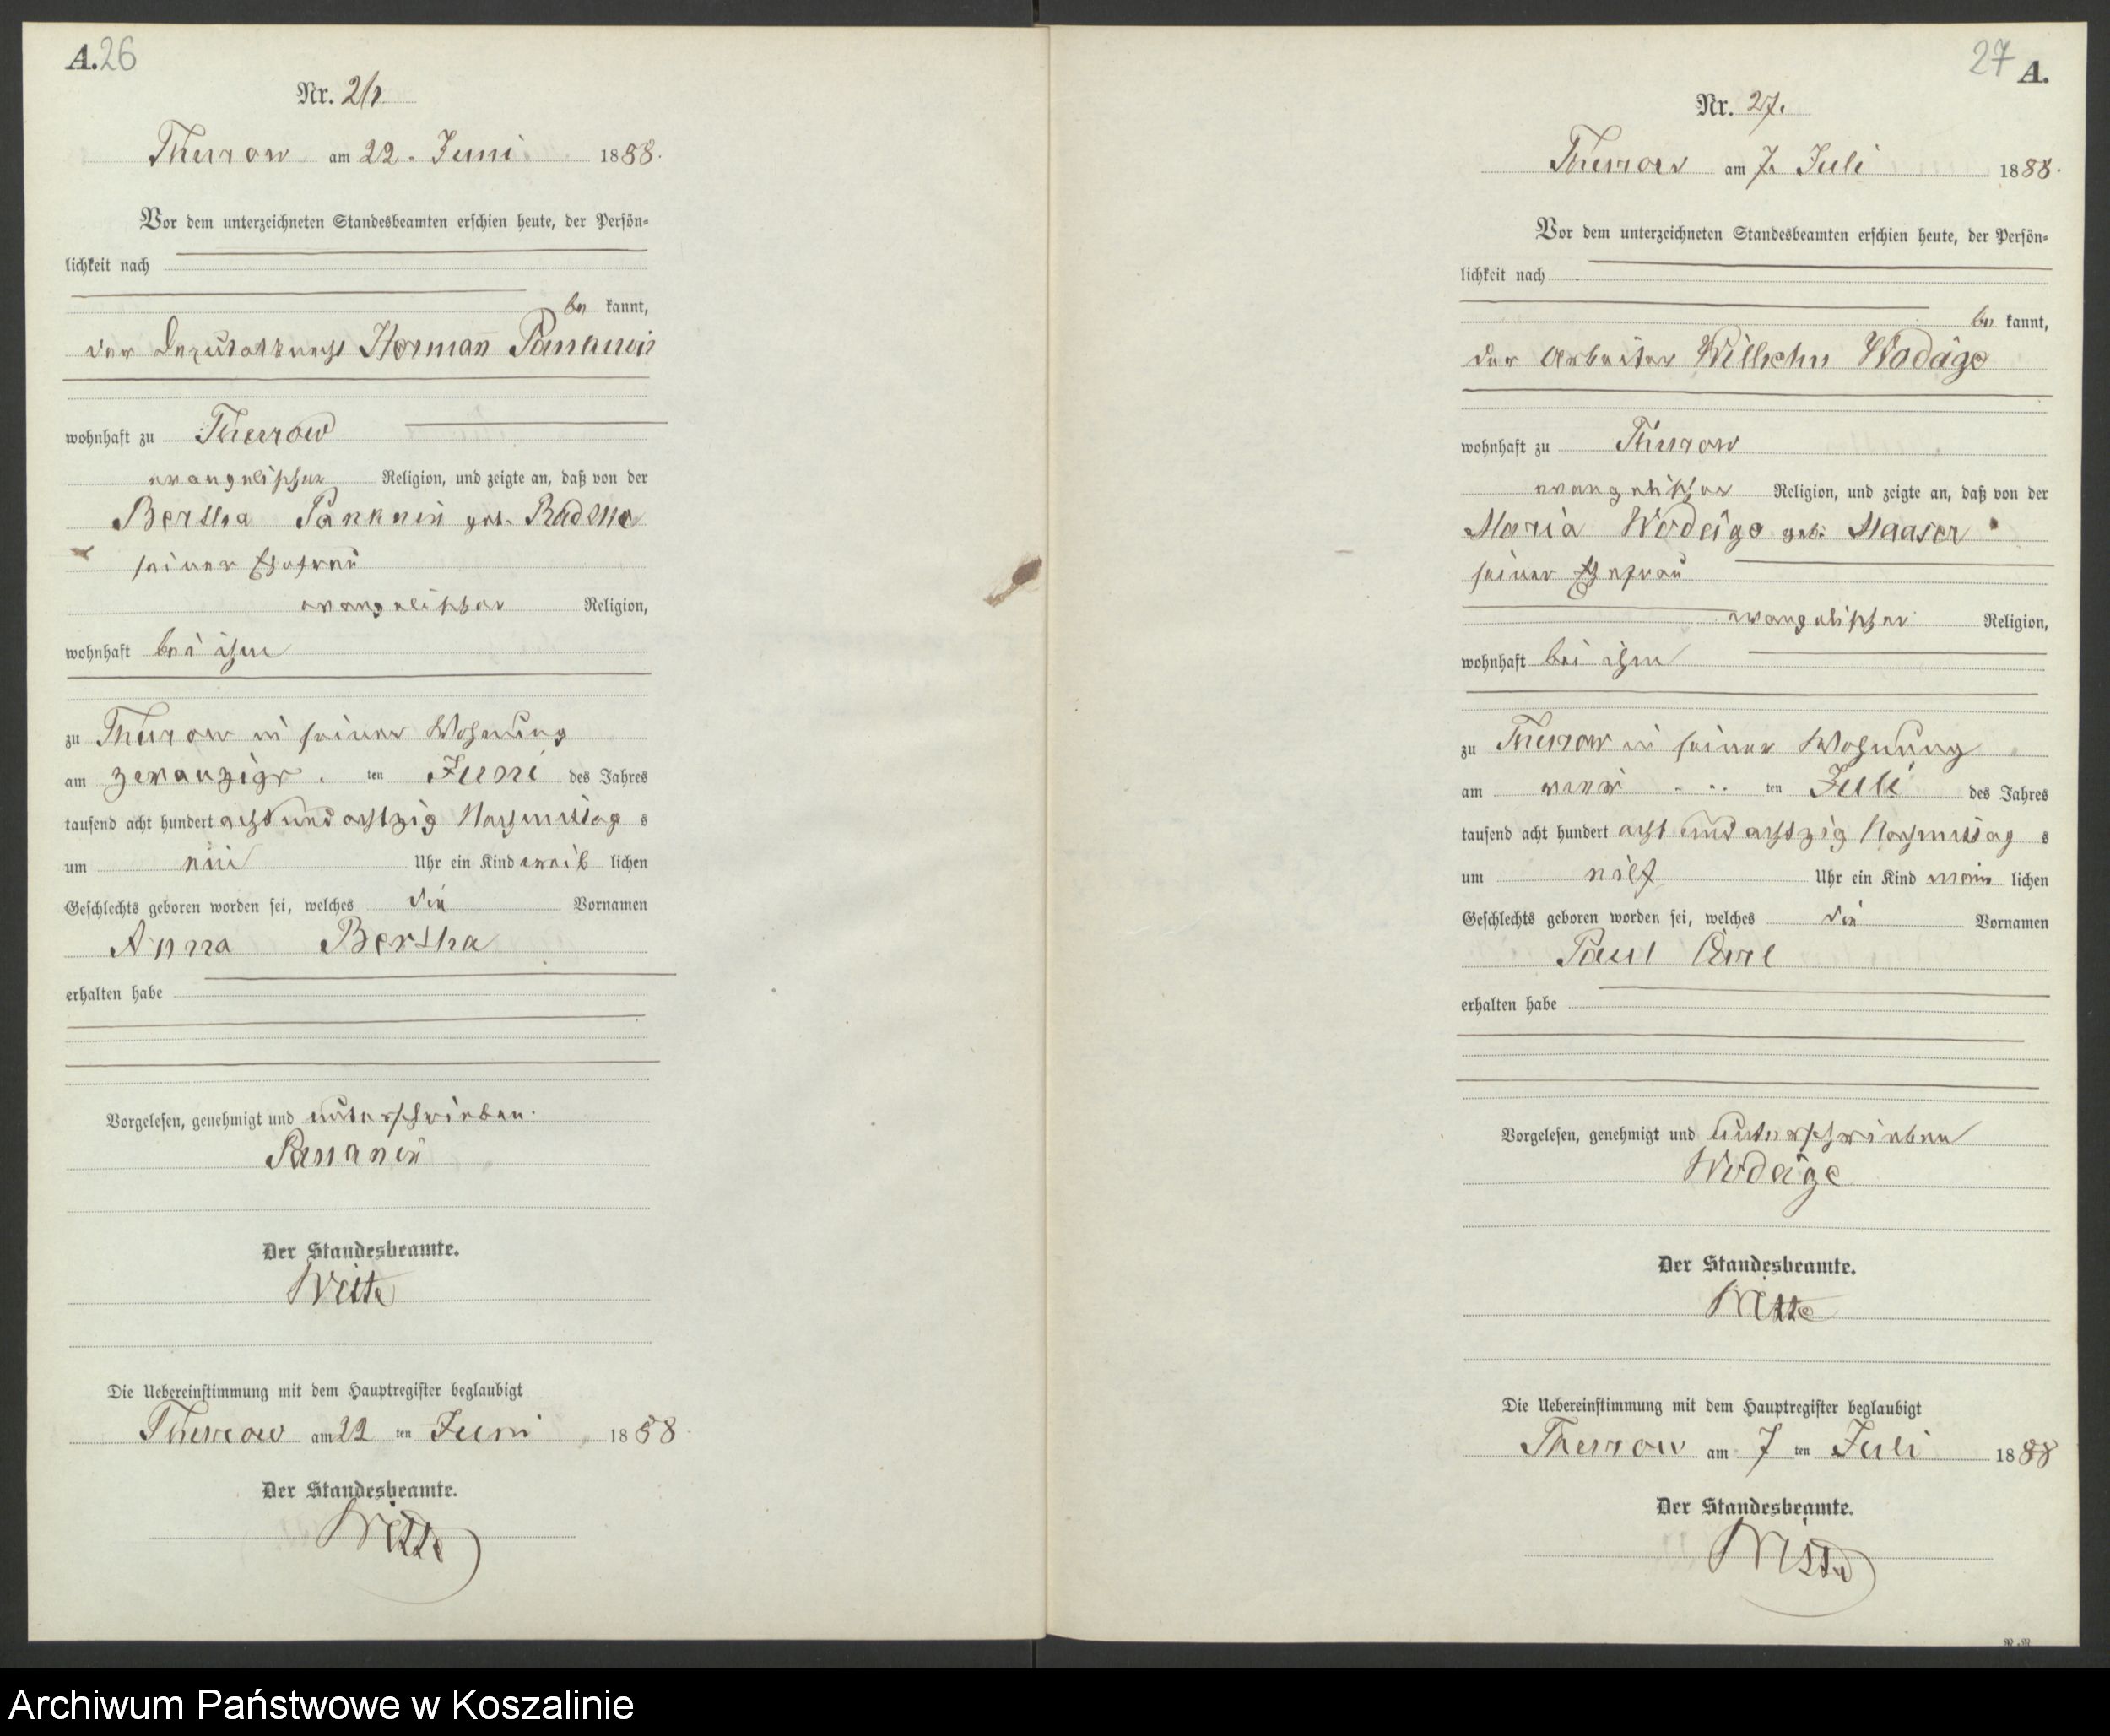 A. 26
Nr. 26.
Thurow am 22. Juni 1888.
Vor dem unterzeichneten Standesbeamten erschien heute, der Persön-
lichkeit nach
be kannt,
der Deputatknecht Herman
wohnhaft zu Thurow
evangelischer Religion, und zeigte an, daß von der
Bertha Panknin geb. Radtke
seiner Ehefrau
evangelischer Religion,
wohnhaft bei ihm
zu Thurow in seiner Wohnung
am zwanzigs ten Juni des Jahres
tausend acht hundert acht und achtzig Nachmittag s
um Uhr ein Kind weib lichen
Geschlechts geboren worden sei, welches die Vornamen
Anna Bertha
erhalten habe
Vorgelesen, genehmigt und unterschrieben.
Der Standesbeamte.
Witte
Die Uebereinstimmung mit dem Hauptregister beglaubigt
Thurow am 22 ten Juni 1888
Der Standesbeamte.
Witte
27 A.
Nr. 27.
Thurow am 7. Juli 1888.
Vor dem unterzeichneten Standesbeamten erschien heute, der Persön-
lichkeit nach
be kannt,
der Arbeiter Wilhelm Wodäge
wohnhaft zu Thurow
evangelischer Religion, und zeigte an, daß von der
Maria Wodäge geb. Maaser
seiner Ehefrau
evangelischer Religion,
wohnhaft bei ihm
zu Thurow in seiner Wohnung
am ten Juli des Jahres
tausend acht hundert acht und achtzig Nachmittag s
um elf Uhr ein Kind männ lichen
Geschlechts geboren worden sei, welches die Vornamen
Paul Carl
erhalten habe
Vorgelesen, genehmigt und unterschrieben
Wodäge
Der Standesbeamte.
Witte
Die Uebereinstimmung mit dem Hauptregister beglaubigt
Thurow am 7 ten Juli 1888
Der Standesbeamte.
Witte
Archiwum Państwowe w Koszalinie